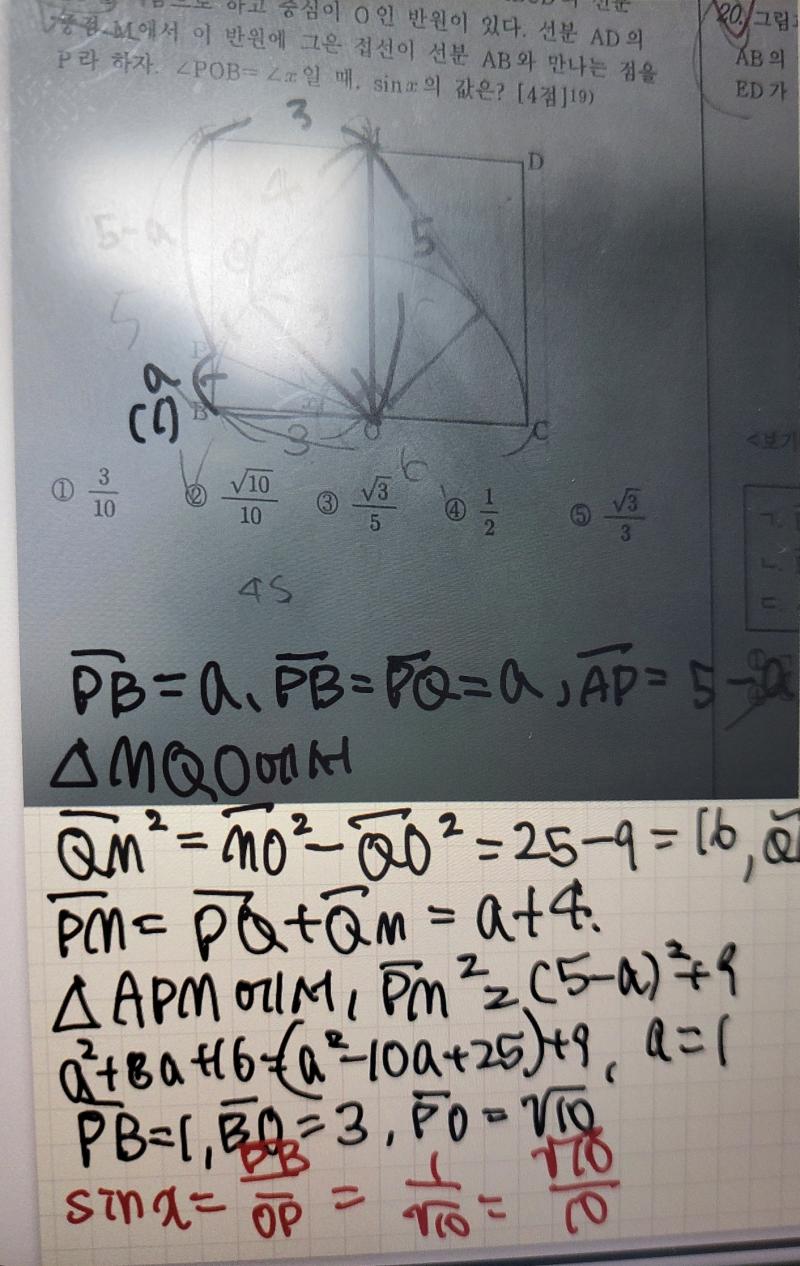 하고 중심이 O인 반원이 있다. 선분 AD의
중점 M에서 이 반원에 그은 접선이 선분 AB와 만나는 점을
P라 하자. ∠POB=∠x일 때, sinx의 값은? [4점]19)
20. 그림
AB의
ED가
3
M
D
4
5-a
5
5
a
(1)
B
3
O
6
C
<보기
① 3/10 ② √10/10 ③ √3/5 ④ 1/2 ⑤ √3/3
ㄱ.
ㄴ.
ㄷ.
45
PB = a, PB = PQ = a, AP = 5-a
△MQO에서
QM² = MO² - QO² = 25-9 = 16,
PM = PQ + QM = a+4.
△APM에서, PM² = (5-a)²+9
a²+8a+16=(a²-10a+25)+9, a=1
PB=1, BO=3, PO=√10
sinx = PB/OP = 1/√10 = √10/10